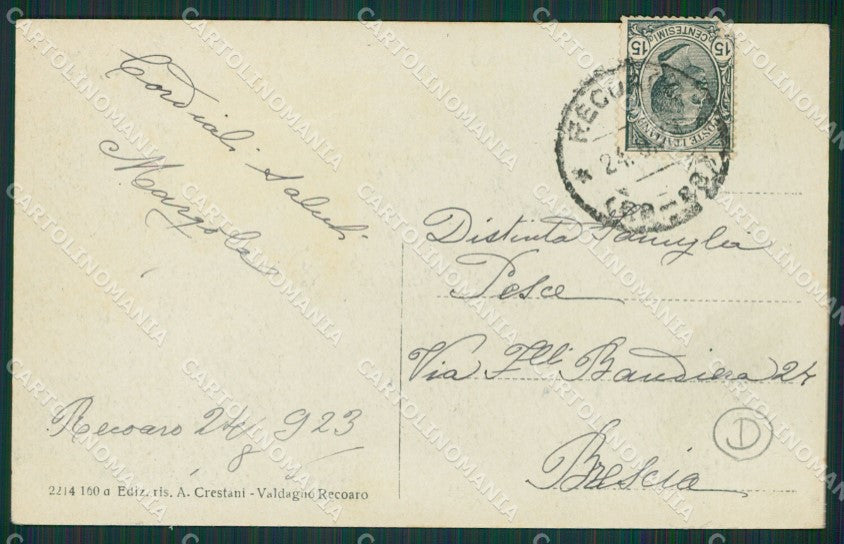 Cordiali saluti
Margola
Recoaro 24/8 923
2214 160 a Ediz. ris. A. Crestani - Valdagno Recoaro
15 CENTESIMI 15
POSTE ITALIANE
RECOARO
Distinta Famiglia
Pesce
Via F.lli Bandiera 24
Brescia
D
CARTOLINOMANIA